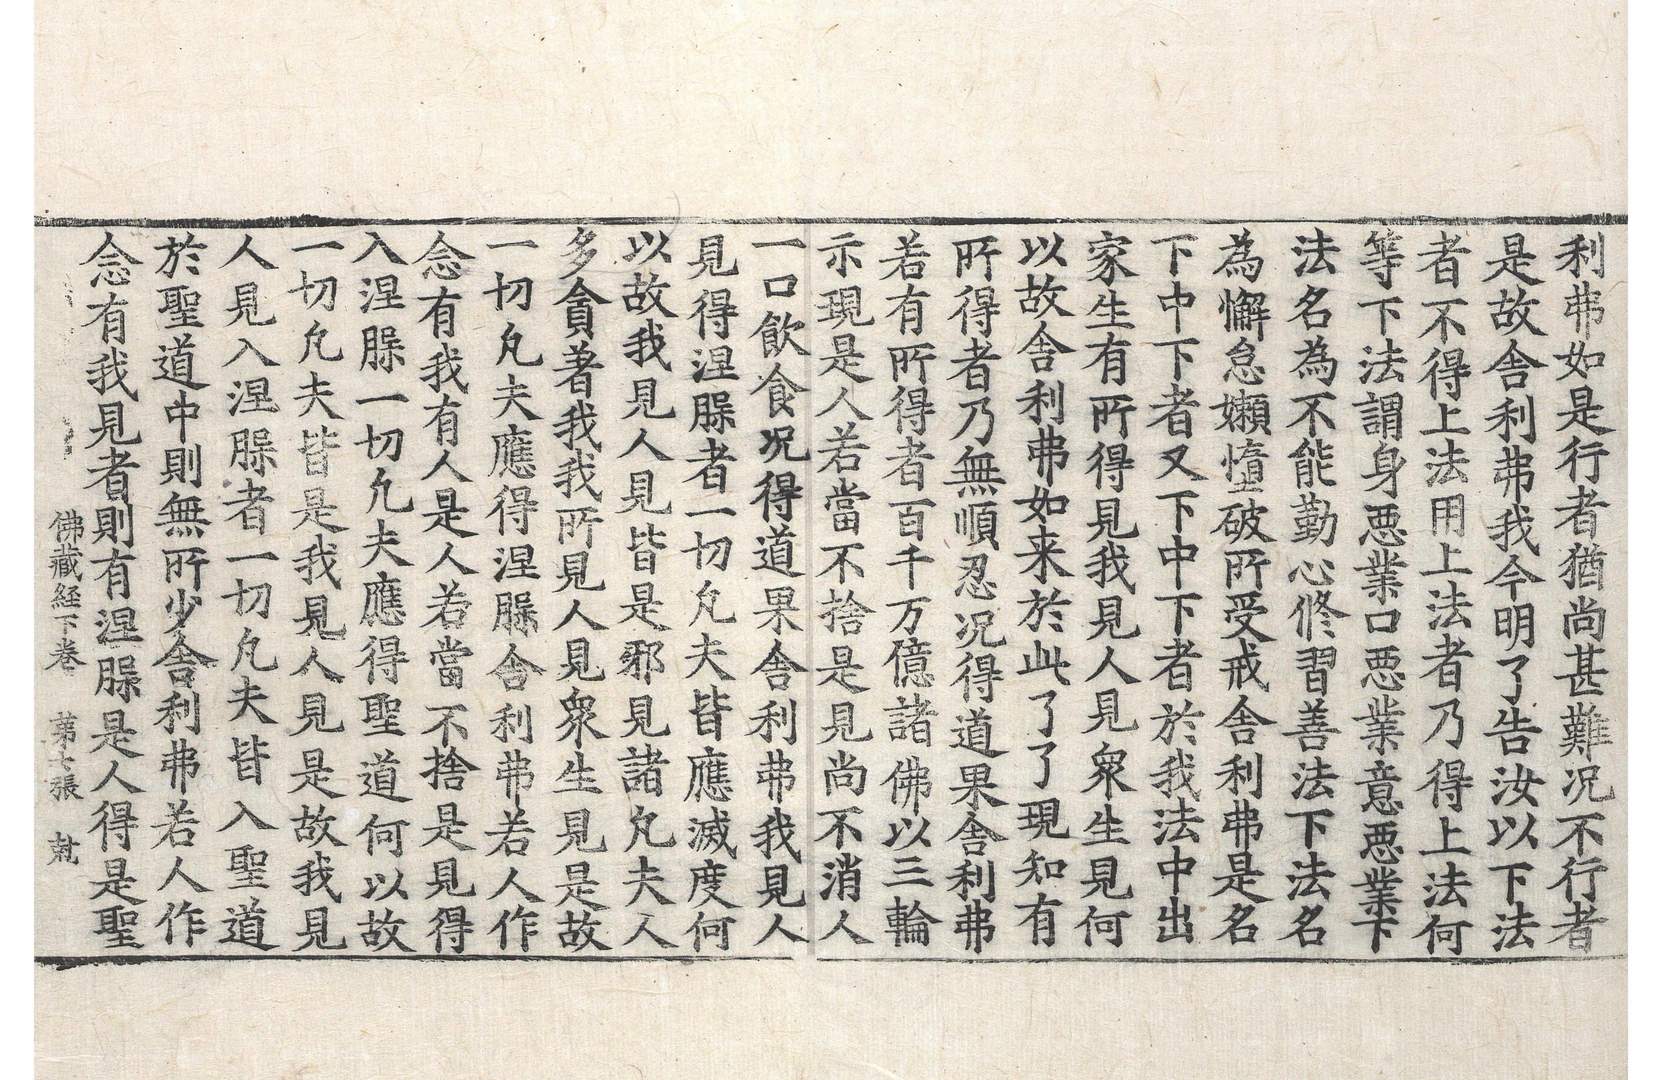 利弗如是行者猶尚甚難况不行者
是故舎利弗我今明了告汝以下法
者不得上法用上法者乃得上法何
等下法謂身惡業口惡業意惡業下
法名為不能勤心修習善法下法名
為懈怠嬾憜破所受戒舎利弗是名
下中下者又下中下者於我法中出
家生有所得見我見人見衆生見何
以故舎利弗如来於此了了現知有
所得者乃無順忍况得道果舎利弗
若有所得者百千万億諸佛以三輪
示現是人若當不捨是見尚不消人
一口飲食况得道果舎利弗我見人
見得涅槃者一切凡夫皆應滅度何
以故我見人見皆是邪見諸凡夫人
多貪著我我所見人見衆生見是故
一切凡夫應得涅槃舎利弗若人作
念有我有人是人若當不捨是見得
入涅槃一切凡夫應得聖道何以故
一切凡夫皆是我見人見是故我見
人見入涅槃者一切凡夫皆入聖道
於聖道中則無所少舎利弗若人作
念有我見者則有涅槃是人得是聖
佛藏経下卷 第七張